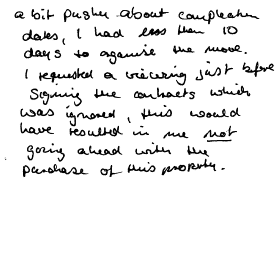 a bit pushy about completion
dates, I had less than 10
days to organise the move.
I requested a viewing just before
signing the contracts which
was ignored, this would
have resulted in me not
going ahead with the
purchase of this property.